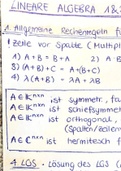 LINEARE ALGEBRA 1&
1 Allgemeine Rechenregeln f
! Zeile vor Spalte (Multipl
1) A+B = B+A 2) A
3) (A+B)+C = A+(B+C)
4) λ(A+B) = λA + λB
A∈K^{n×n} ist symmetr., fa
A∈K^{n×n} ist schiefsymmet
A∈K^{n×n} ist orthogonal,
(Spalten/Zeilen
A∈C^{n×n} ist hermitesch f
4. LGS - Lösung des LGS (